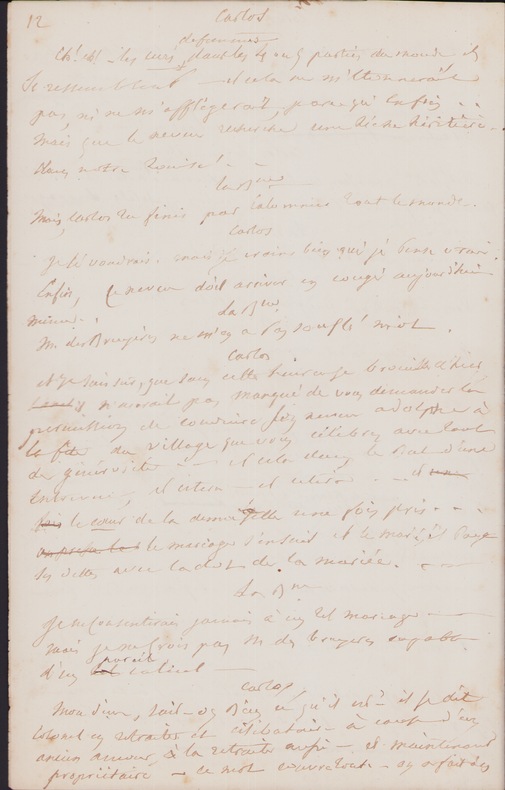 12
Carlos
Eh! Eh! les uns dans les 4 ou 5 parties du monde ils
se ressemblent — et cela ne m'étonnerait
pas, ni ne m'affligerait, parce qu'enfin . .
mais que le neveu recherche une riche héritière.
dans notre Louise! . .
La Bnne
Mais, Carlos tu finis par calomnier tout le monde..
Carlos
Je le voudrais. mais je crains bien que je pense vrai.
Enfin, ce neveu doit arriver en congé aujourd'hui
même. .
La Bnne
Mr des Bruyères ne m'en a pas soufflé mot.
Carlos
et je sais sûr, que sans cette heureuse brouille d'hier
il n'aurait pas manqué de vous demander la
permission de conduire son neveu adolphe à
la fête du village que vous célébrez avec tant
de générosité — et cela dans le but d'une
entrevue, et cetera — et cetera . . .
le cœur de la demoiselle une fois pris . . .
le mariage s'ensuit et le mari paye
ses dettes avec la dot de la mariée.
La Bnne
Je ne consentirais jamais à un tel mariage —
mais je ne crois pas Mr des Bruyères capable
d'un pareil calcul —
Carlos
Mon dieu, sait-on bien ce qu'il est — il se dit
colonel en retraite et célibataire à cause d'un
ancien amour, à la retraite aussi — et maintenant
propriétaire — ce mot couvre tout — on en fait des